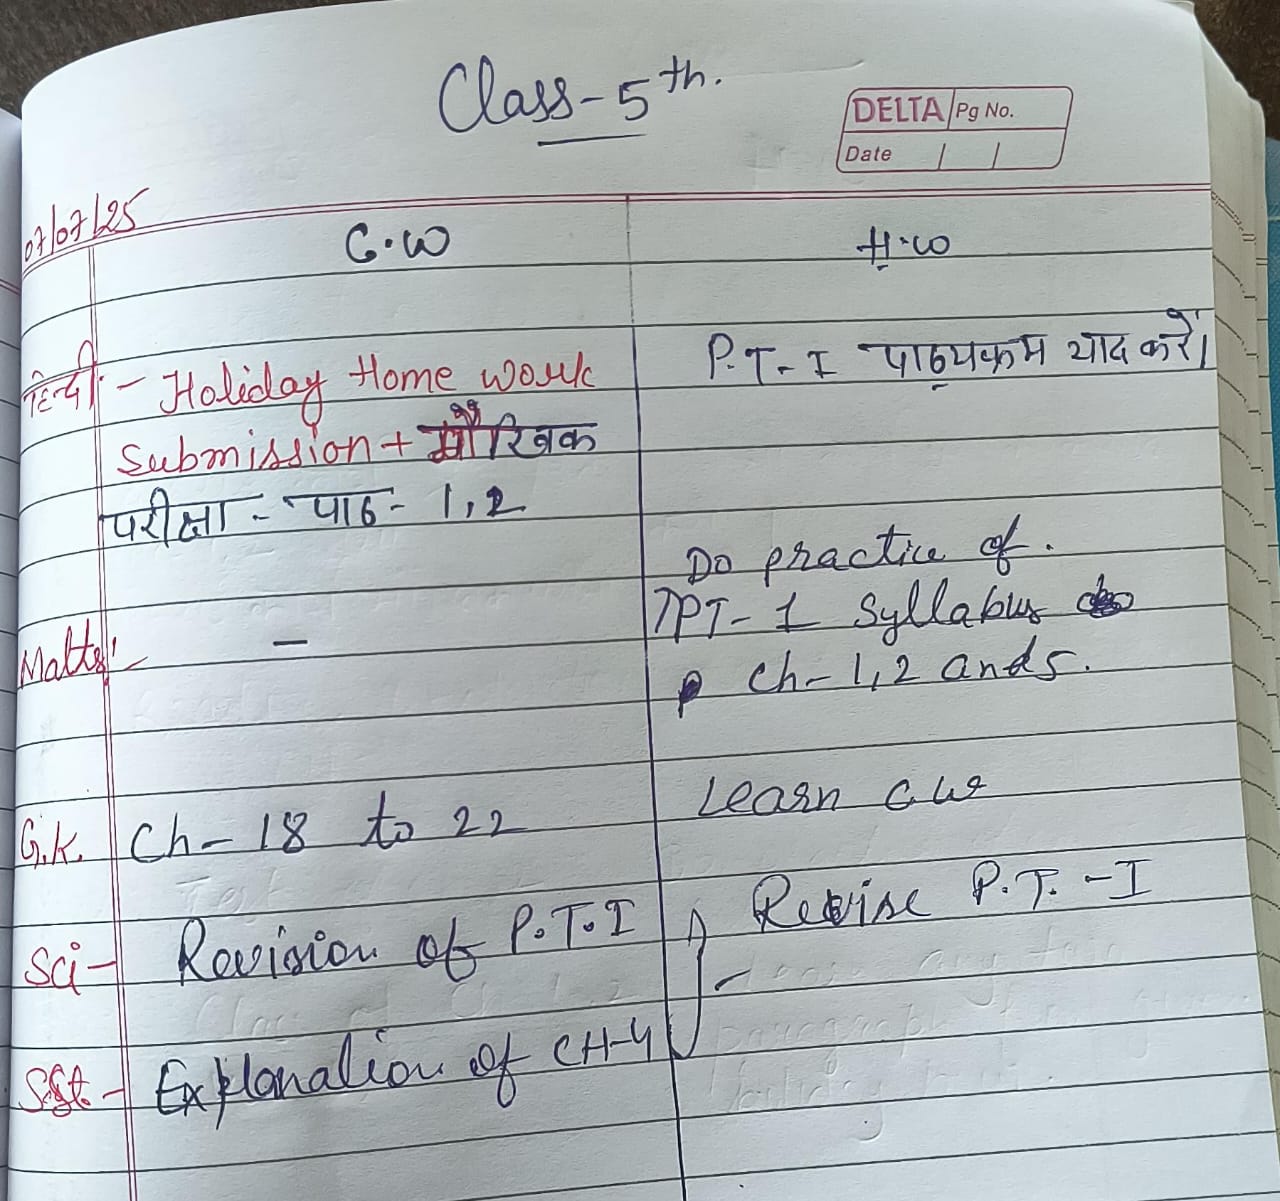 Class-5th.
DELTA Pg No.
Date / /
07/07/25
C.W
H.W
हिन्दी - Holiday Home work
P.T-I पाठ्यक्रम याद करें।
Submission + मौखिक
परीक्षा - पाठ - 1,2
Do practice of.
Maths:- -
PT-1 Syllabus
Ch-1,2 and 5.
G.K. Ch-18 to 22
Learn C.W
Sci- Revision of P.T.I
Revise P.T.-I
S.St- Explanation of CH-4